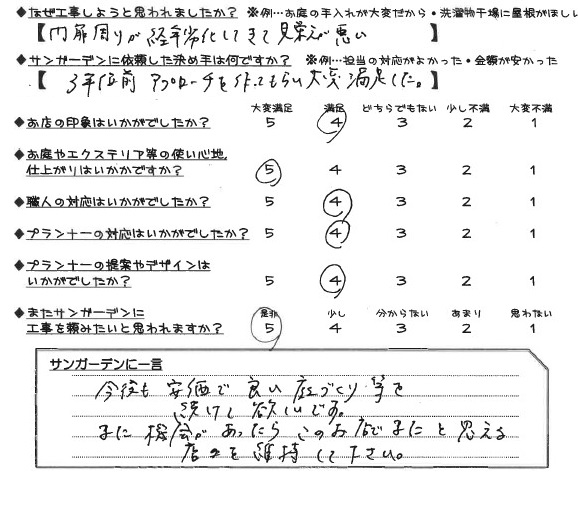 ◆なぜ工事しようと思われましたか? ※例…お庭の手入れが大変だから・洗濯物干場に屋根がほしい
【門扉周りが経年劣化してきて見栄えが悪い】
◆サンガーデンに依頼した決め手は何ですか? ※例…担当の対応がよかった・金額が安かった
【3年位前アプローチを作ってもらい大変満足した。】
大変満足 満足 どちらでもない 少し不満 大変不満
◆お店の印象はいかがでしたか? 5 4 3 2 1
◆お庭やエクステリア等の使い心地,
仕上がりはいかがですか? 5 4 3 2 1
◆職人の対応はいかがでしたか? 5 4 3 2 1
◆プランナーの対応はいかがでしたか? 5 4 3 2 1
◆プランナーの提案やデザインは
いかがでしたか? 5 4 3 2 1
是非 少し 分からない あまり 思わない
◆またサンガーデンに
工事を頼みたいと思われますか? 5 4 3 2 1
サンガーデンに一言
今後も安価で良い庭づくり等を
続けて欲しいです。
またに機会があったらこのお店でまたにと思える
店を維持して下さい。